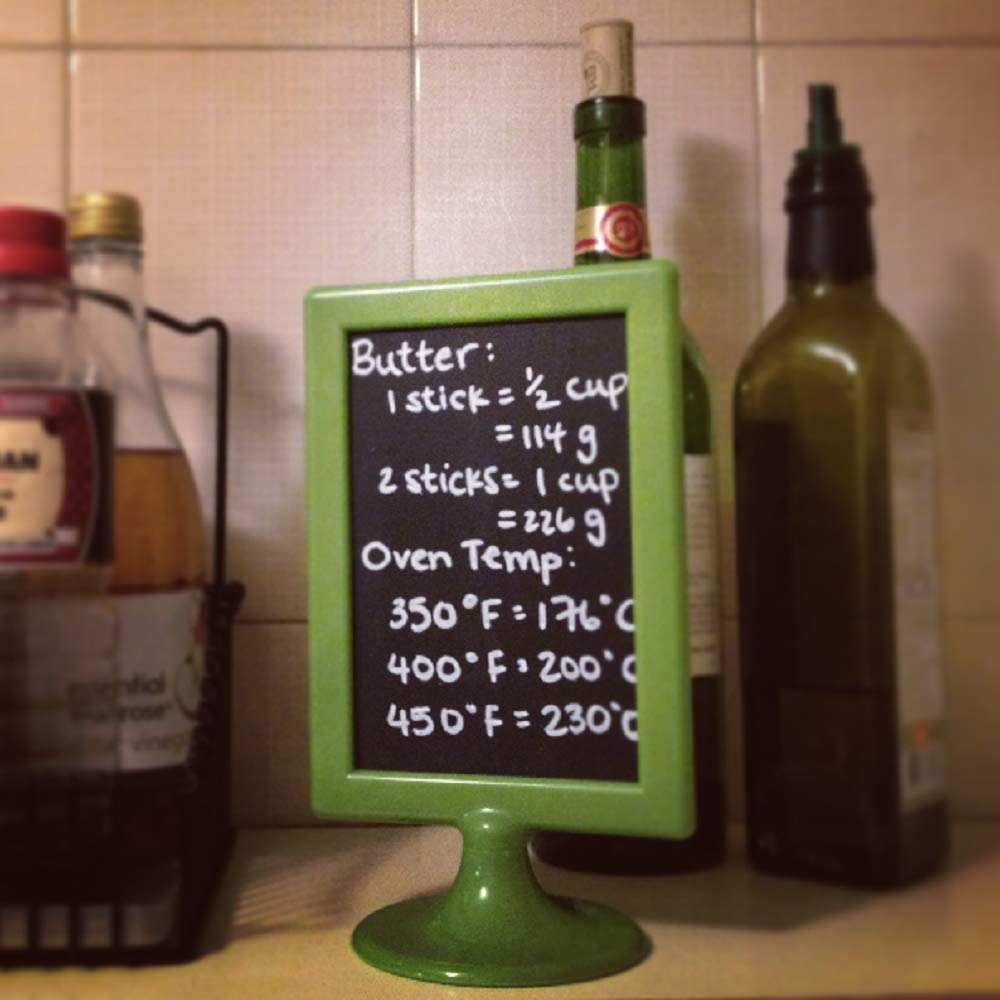 Butter:
1 stick = ½ cup
= 114 g
2 sticks = 1 cup
= 226 g
Oven Temp:
350°F = 176°C
400°F = 200°C
450°F = 230°C
essential